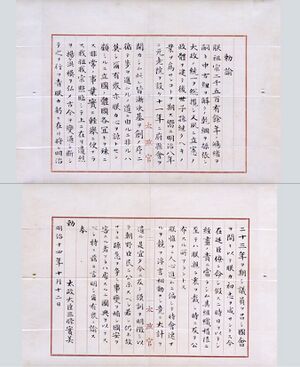 勅諭
朕祖宗二千五百有餘年ノ鴻緒ヲ
嗣キ中古紐ヲ解クノ乾綱ヲ振張シ
大政ノ統一ヲ總攬シ又夙ニ立憲ノ
政體ヲ建テ後世子孫繼クヘキノ
業ヲ爲サンコトヲ期ス嚮ニ明治八年
ニ元老院ヲ設ケ十一年ニ府縣會ヲ
開カシム此レ皆漸次基ヲ創メ序ニ
循テ歩ヲ進ムルノ道ニ由ルニ非サルハ
莫シ爾有衆亦朕カ心ヲ諒トセン
顧ミルニ立國ノ體國各宜キヲ殊ニ
ス非常ノ事業實ニ輕擧ニ便ナラ
ス我祖我宗照臨シテ上ニ在リ遺烈
ヲ揚ケ洪模ヲ弘メ古今ヲ變通シ斷シ
テ之ヲ行フ責朕カ躬ニ在リ將ニ明治
太政官
二十三年ヲ期シ議員ヲ召シ國會
ヲ開キ以テ朕カ初志ヲ成サントス今
在廷臣僚ニ命シ假スニ時日ヲ以テシ
經畫ノ責ニ當ラシム其組織權限ニ
至テハ朕親ラ衷ヲ裁シ時ニ及テ公
布スル所アラントス
朕惟フニ人心進ムニ偏シテ時會速ナ
ルヲ競フ浮言相動カシ竟ニ大計ヲ
太政官
遺ル是レ宜シク今ニ及テ謨訓ヲ明徴シ以
テ朝野臣民ニ公示スヘシ若シ仍ホ故サ
ラニ躁急ヲ爭ヒ事變ヲ煽シ國安ヲ
害スル者アラハ處スルニ國典ヲ以テス
ヘシ特ニ茲ニ言明シ爾有衆ニ諭ス
奉
勅 太政大臣三條實美
明治十四年十月十二日